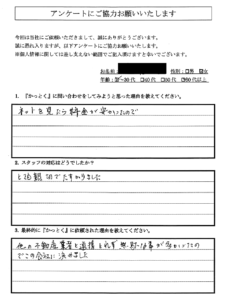 アンケートにご協力お願いいたします
今回は当社にご依頼いただきまして、誠にありがとうございます。
誠に恐れ入りますが、以下アンケートにご協力お願いいたします。
※個人情報に関しては差し支えない範囲でご記入頂けますと幸いでございます。
お名前 性別:□男 ☑女
1. 『かっとく』に問い合わせをしてみようと思った理由を教えてください。
ネットを見たら料金が安かったので
2. スタッフの対応はどうでしたか?
とても親切でたすかりました
3. 最終的に『かっとく』に依頼された理由を教えてください。
他の不動産業者と連携とれず 無理な事が多かったの
でこの会社に決めました